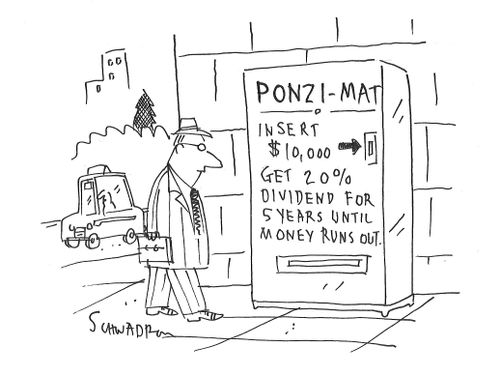 PONZI-MAT
INSERT
$10,000
GET 20%
DIVIDEND FOR
5 YEARS UNTIL
MONEY RUNS OUT.
SCHWADRON